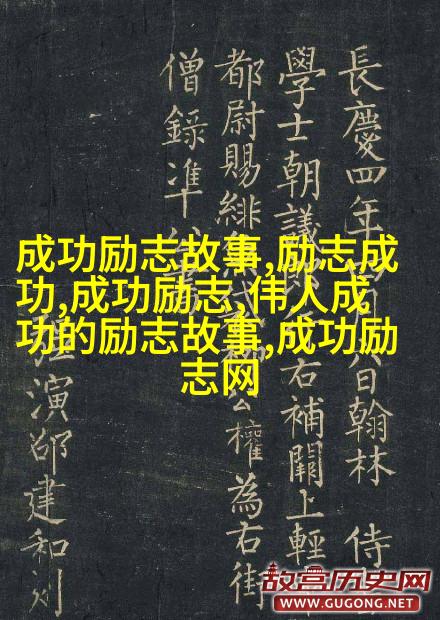 成功励志故事,励志成
功,成功励志,伟人成
功的励志故事,成功励
志网
長慶四年日翰林 侍
學士朝議右補闕上輕
都尉賜緋公權為右街
僧錄準
演邵建和刻
故宫历史网
WWW.GUGONG.NET